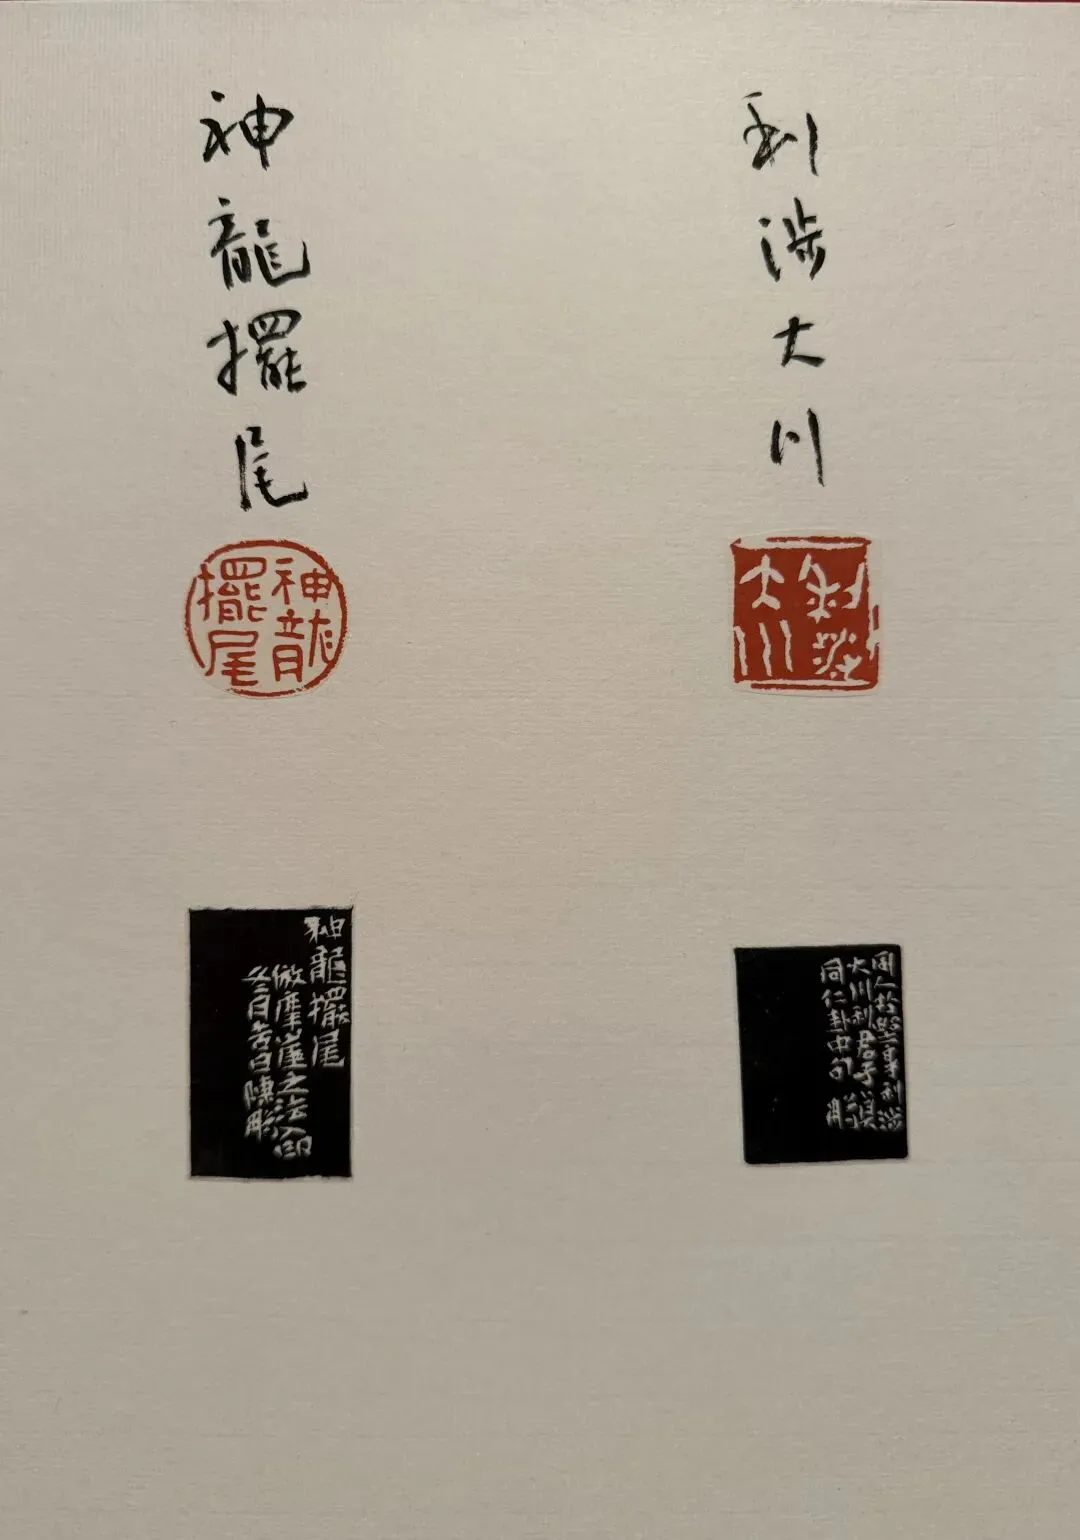 利涉大川
神龍擺尾
利涉
大川
神龍
擺尾
同人於野亨利涉
大川利君子貞
同仁卦中句
神龍擺尾
倣摩崖之法入印
冬日告白陳